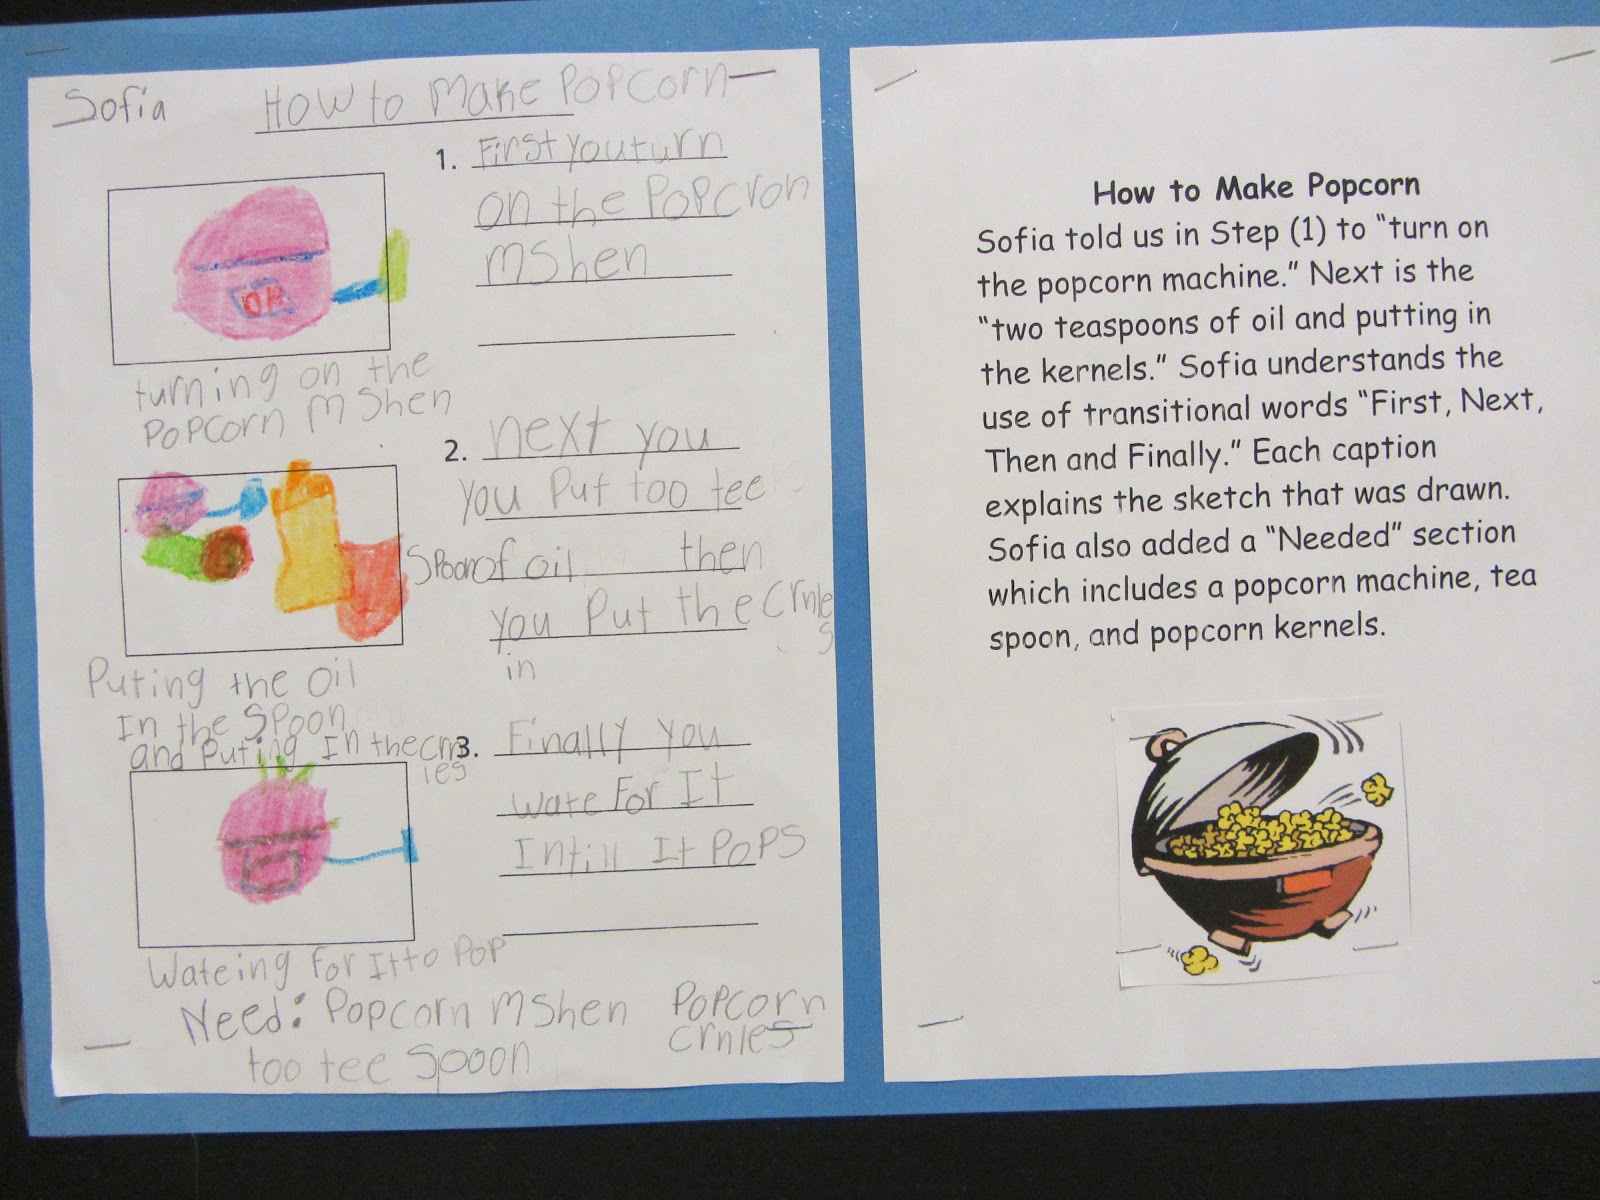 Sofia How to Make Popcorn
1. First you turn
on the Popcron
mShen
ON
turning on the
Popcorn mShen
2. next you
you Put too tee
Spoon of oil then
you Put the Crnle
s
in
Puting the oil
In the Spoon
and Puting In the crn
les
3. Finally you
wate For It
Intill It Pops
Wateing For It to Pop
Need: Popcorn mShen Popcorn
crnles
too tee Spoon
How to Make Popcorn
Sofia told us in Step (1) to "turn on
the popcorn machine." Next is the
"two teaspoons of oil and putting in
the kernels." Sofia understands the
use of transitional words "First, Next,
Then and Finally." Each caption
explains the sketch that was drawn.
Sofia also added a "Needed" section
which includes a popcorn machine, tea
spoon, and popcorn kernels.